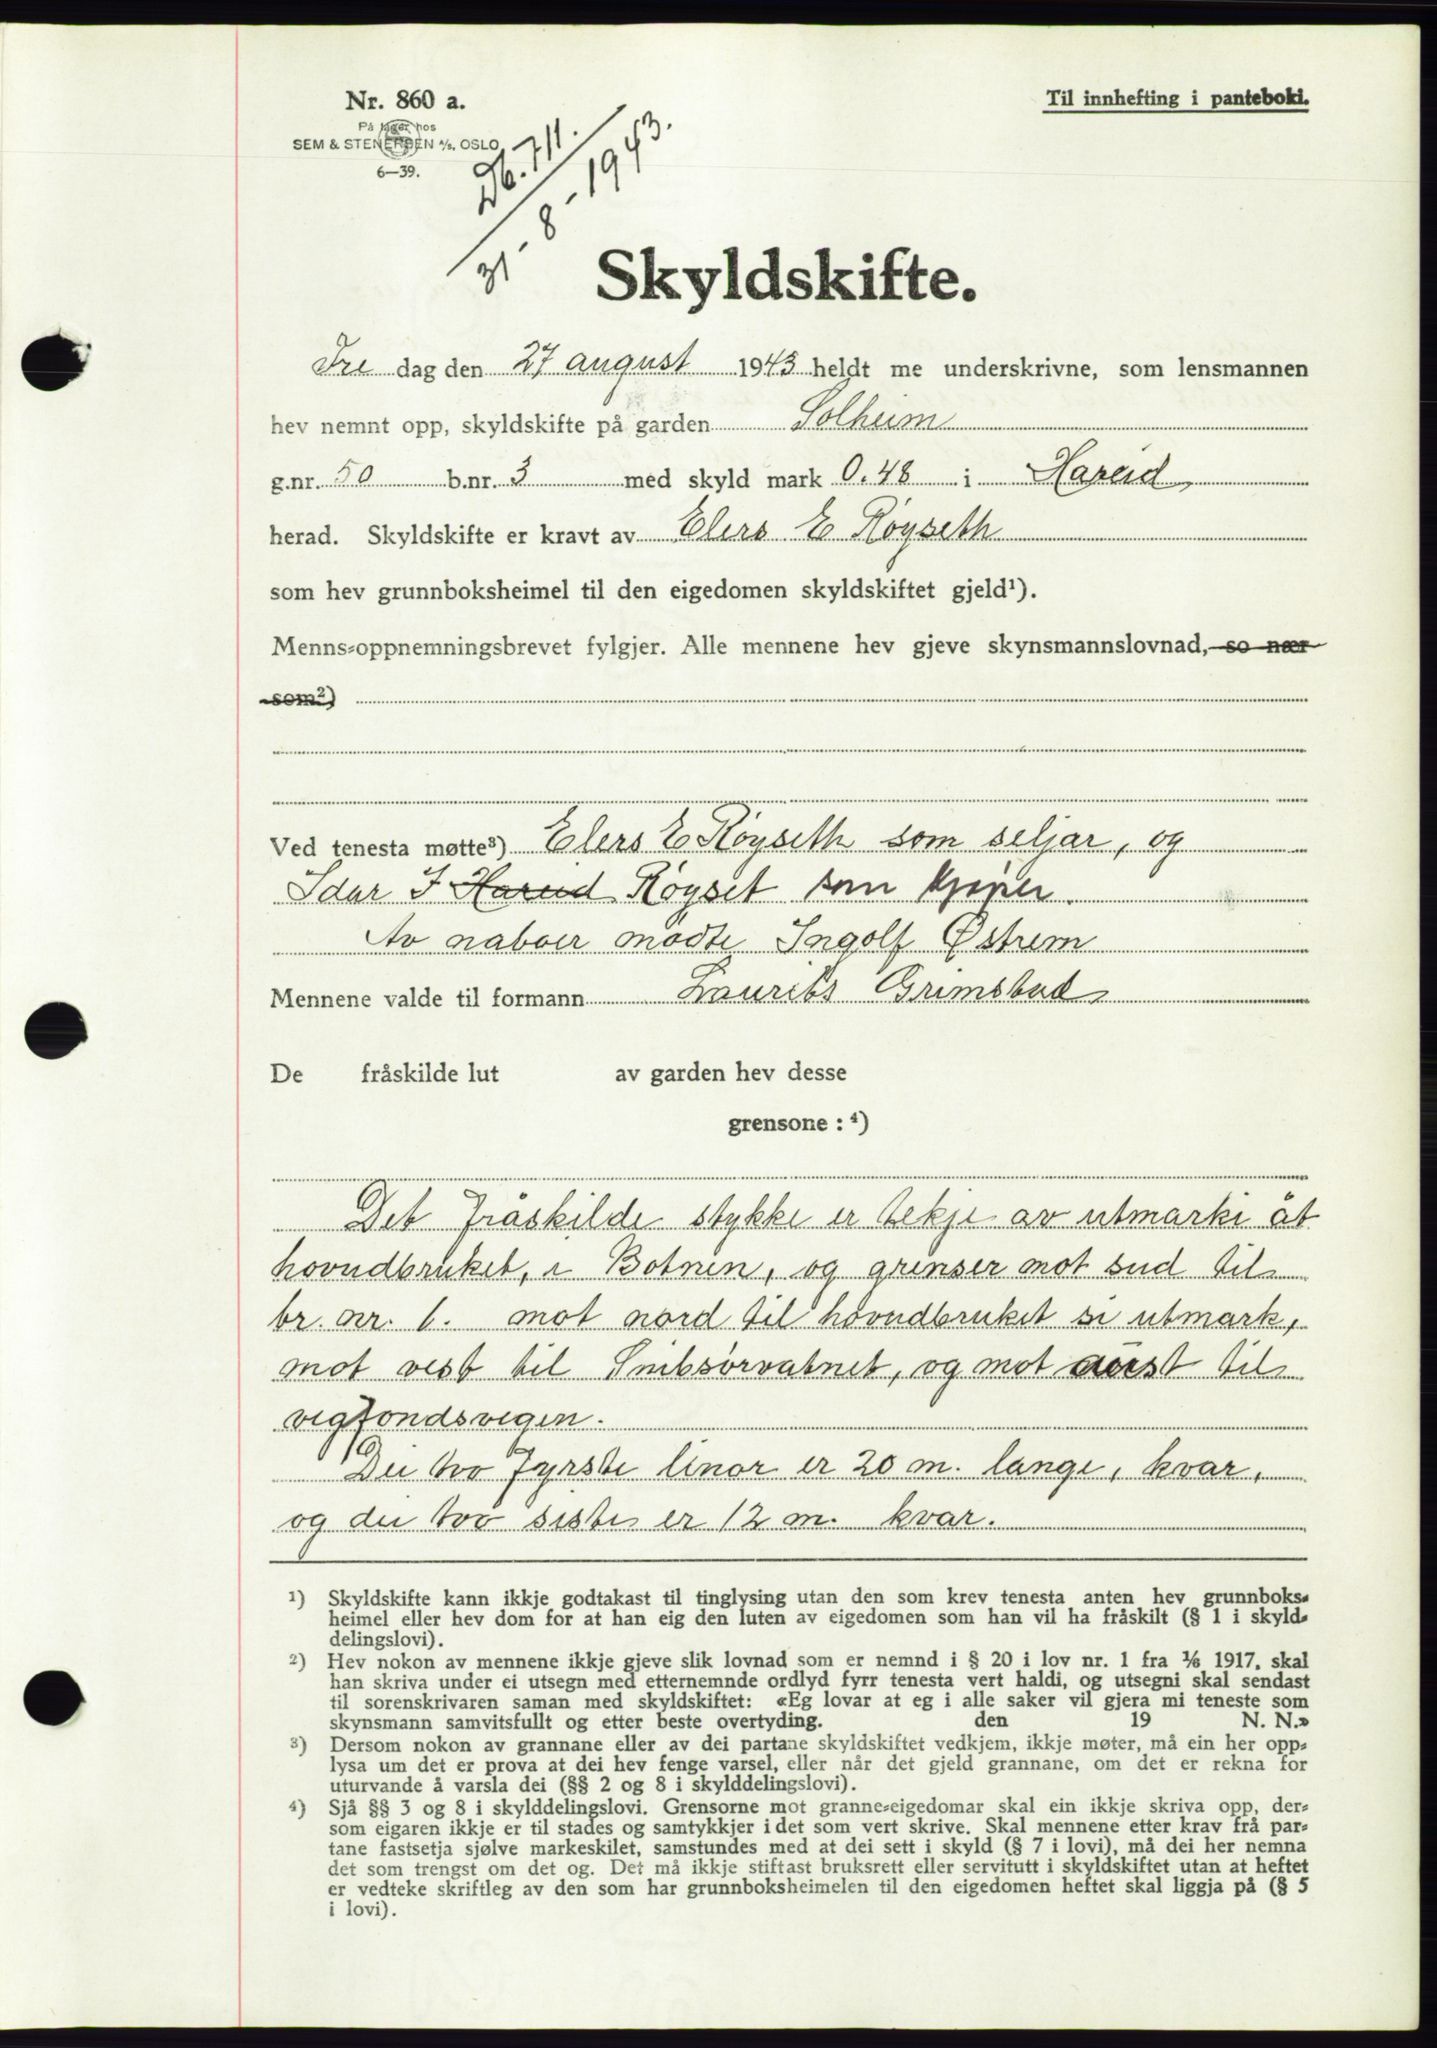 Nr. 860 a.
På lager hos
SEM & STENERSEN A/S, OSLO
6—39.
Til innhefting i panteboki.
Db. 711.
31-8-1943.
Skyldskifte.
Fre dag den 27 august 1943 heldt me underskrivne, som lensmannen
hev nemnt opp, skyldskifte på garden Solheim
g.nr. 50 b.nr. 3 med skyld mark 0.48 i Hareid
herad. Skyldskifte er kravt av Elers E Røyseth
som hev grunnboksheimel til den eigedomen skyldskiftet gjeld¹).
Menns-oppnemningsbrevet fylgjer. Alle mennene hev gjeve skynsmannslovnad, so nær
som²)
Ved tenesta møtte³) Elers E Røyseth som seljar, og
Idar I Hareid Røyset som kjøper.
Av naboer mødte Ingolf Østrem
Mennene valde til formann Laurits Grimstad
De fråskilde lut av garden hev desse
grensone : ⁴)
Det fråskilde stykke er tekje av utmarki åt
hovudbruket, i Botnen, og grenser mot sud til
br. nr. 1. mot nord til hovudbruket si utmark,
mot vest til Snibsørvatnet, og mot aust til
vegfondsvegen.
Dei tvo fyrste linor er 20 m. lange, kvar,
og dei tvo siste er 12 m. kvar.
1) Skyldskifte kann ikkje godtakast til tinglysing utan den som krev tenesta anten hev grunnboks-
heimel eller hev dom for at han eig den luten av eigedomen som han vil ha fråskilt (§ 1 i skyld-
delingslovi).
2) Hev nokon av mennene ikkje gjeve slik lovnad som er nemnd i § 20 i lov nr. 1 fra 1/6 1917, skal
han skriva under ei utsegn med etternemnde ordlyd fyrr tenesta vert haldi, og utsegni skal sendast
til sorenskrivaren saman med skyldskiftet: «Eg lovar at eg i alle saker vil gjera mi teneste som
skynsmann samvitsfullt og etter beste overtyding. den 19 N. N.»
3) Dersom nokon av grannane eller av dei partane skyldskiftet vedkjem, ikkje møter, må ein her opp-
lysa um det er prova at dei hev fenge varsel, eller når det gjeld grannane, om det er rekna for
uturvande å varsla dei (§§ 2 og 8 i skylddelingslovi).
4) Sjå §§ 3 og 8 i skylddelingslovi. Grensorne mot granne-eigedomar skal ein ikkje skriva opp, der-
som eigaren ikkje er til stades og samtykkjer i det som vert skrive. Skal mennene etter krav frå par-
tane fastsetja sjølve markeskilet, samstundes med at dei sett i skyld (§ 7 i lovi), må dei her nemna
det som trengst om det og. Det må ikkje stiftast bruksrett eller servitutt i skyldskiftet utan at heftet
er vedteke skriftleg av den som har grunnboksheimelen til den eigedomen heftet skal liggja på (§ 5
i lovi).